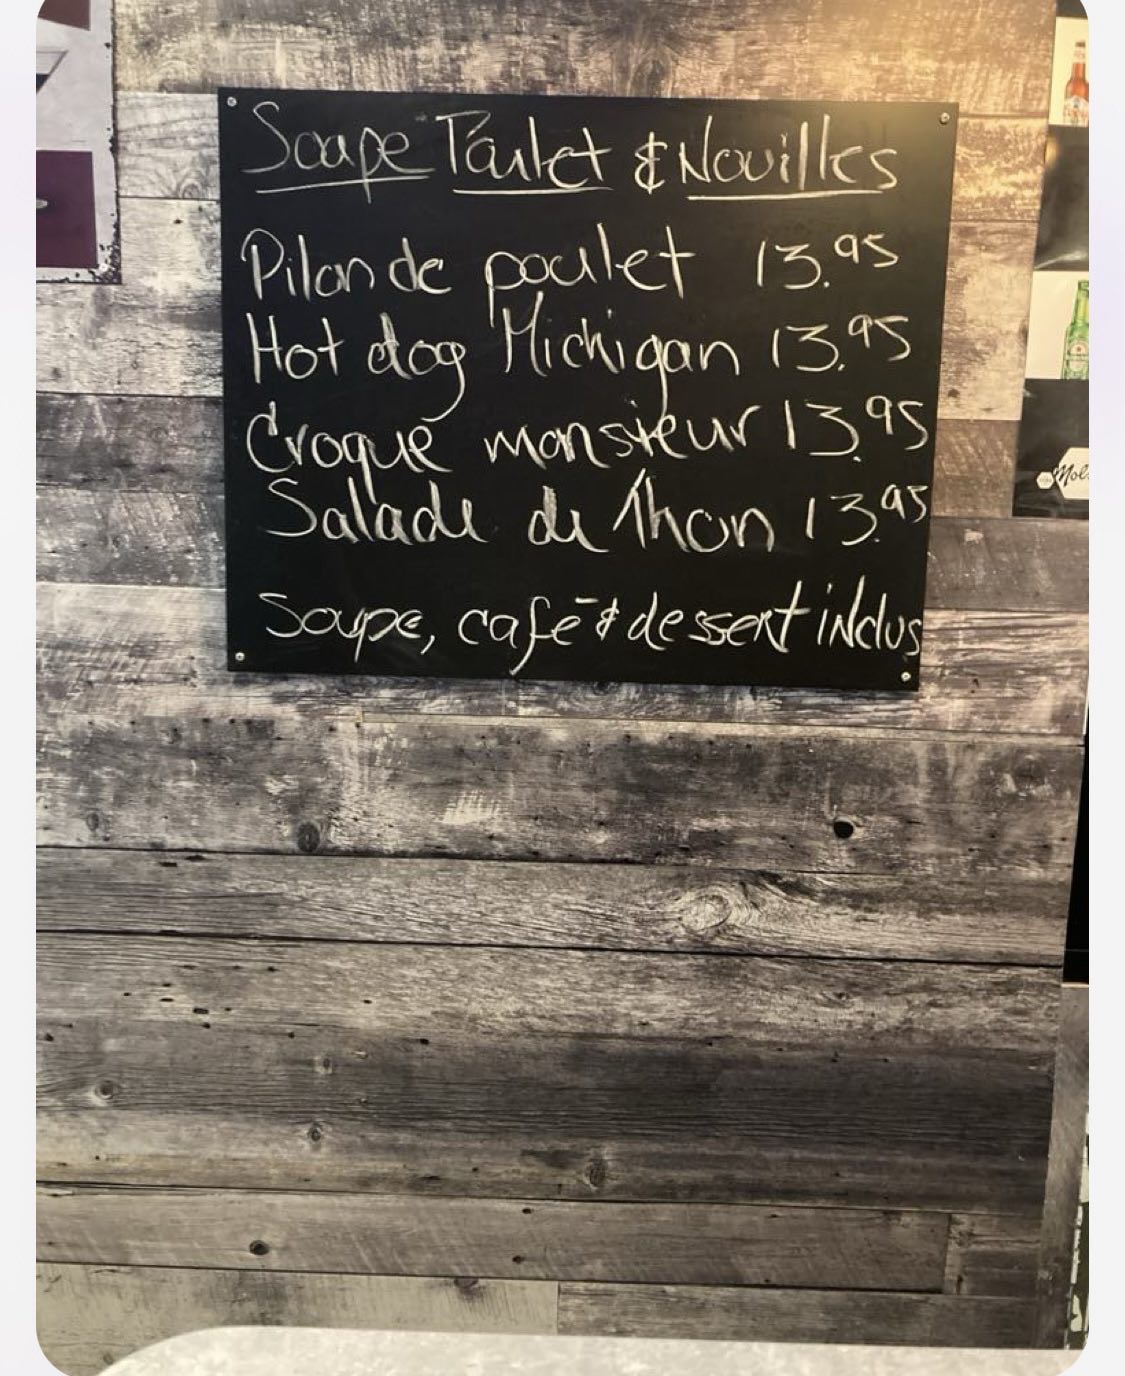 Soupe Poulet & Nouilles
Pilon de poulet 13.95
Hot dog Michigan 13.95
Croque monsieur 13.95
Salade de Thon 13.95
Soupe, café & dessert inclus
Mol